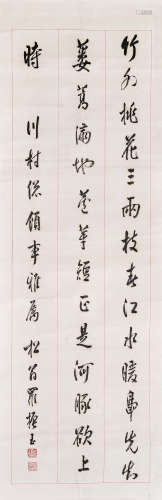 竹外桃花三兩枝春江水暖鳧先知
蔞蒿滿地蘆芽短正是河豚欲上
時 川村總領事雅屬 松翁羅振玉